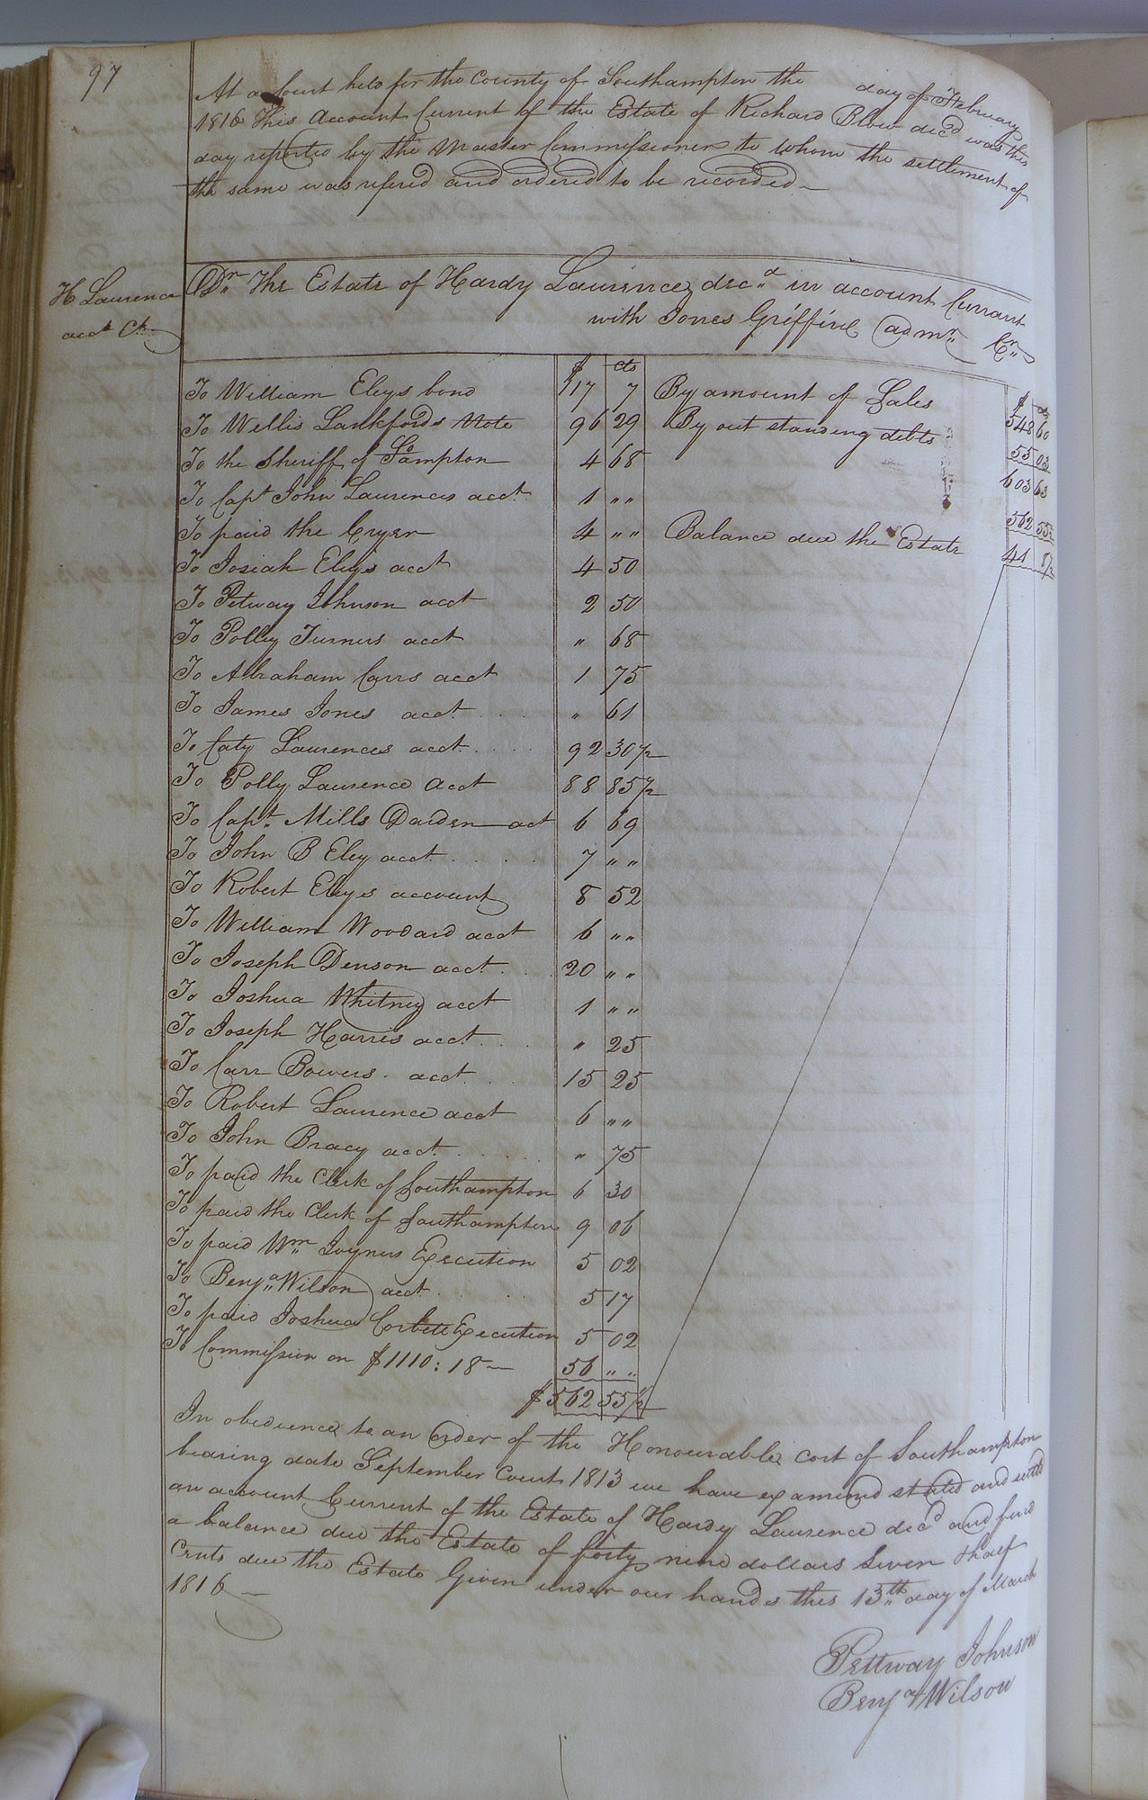 97
At a Court held for the County of Southampton the day of February
1816 This Account Current of the Estate of Richard Blow decd was this
day reported by the Master Commissioner to whom the settlement of
the same was refered and ordered to be recorded
H Laurence
acct Ct
Dr The Estate of Hardy Laurence decd in account Currant
with Jones Griffin admr Cr
$ cts
$ cts
To William Eleys bond 117 7 By amount of Sales 548 60
To Wellis Lankfords Note 96 29 By out standing debts 55 03
To the Sheriff of So ampton 4 68 603 63
To Capt John Laurences acct 1 " " 562 55½
To paid the Cryer 4 " " Balance due the Estate 41 7½
To Josiah Eleys acct 4 50
To Petway Johnson acct 2 50
To Polley Turners acct " 68
To Abraham Carrs acct 1 75
To James Jones acct " 61
To Caty Laurences acct 92 30½
To Polly Laurence acct 88 85½
To Capt. Mills Darden act 6 69
To John B Eley acct 7 " "
To Robert Eleys account 8 52
To William Woodard acct 6 " "
To Joseph Denson acct 20 " "
To Joshua Whitney acct 1 " "
To Joseph Harris acct " 25
To Carr Bowers acct 15 25
To Robert Laurence acct 6 " "
To John Bracy acct " 75
To paid the Clerk of Southampton 6 30
To paid the Clerk of Southampton 9 06
To paid Wm Joyners Execution 5 02
To Benja Wilson acct 5 17
To paid Joshua Corbitt Execution 5 02
To Commission on $1110:18 56 " "
$562 55½
In obedience to an Order of the Honourable cort of Southampton
bearing date September Court 1813 we have examined stated and settd
an account Current of the Estate of Hardy Laurence decd and find
a balance due the Estate of forty nine dollars Seven & half
Cents due the Estate Given under our hands this 13th day of March
1816
Pettway Johnson
Benja Wilson